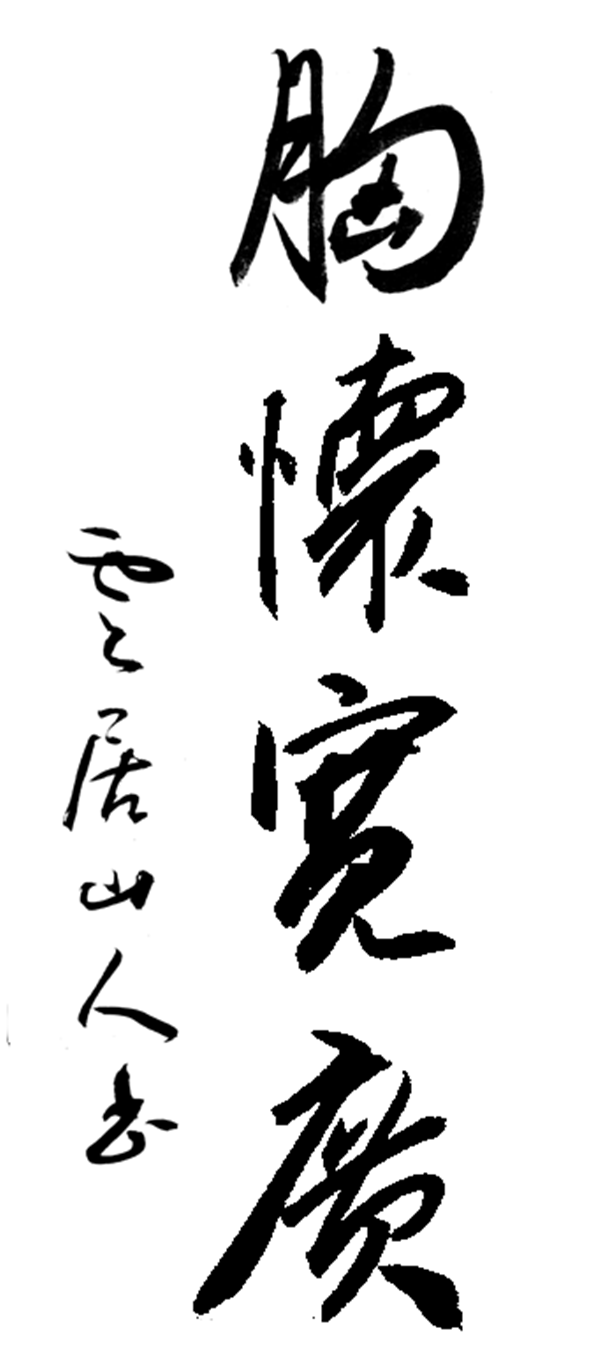 胸懷寬廣
雲居山人书